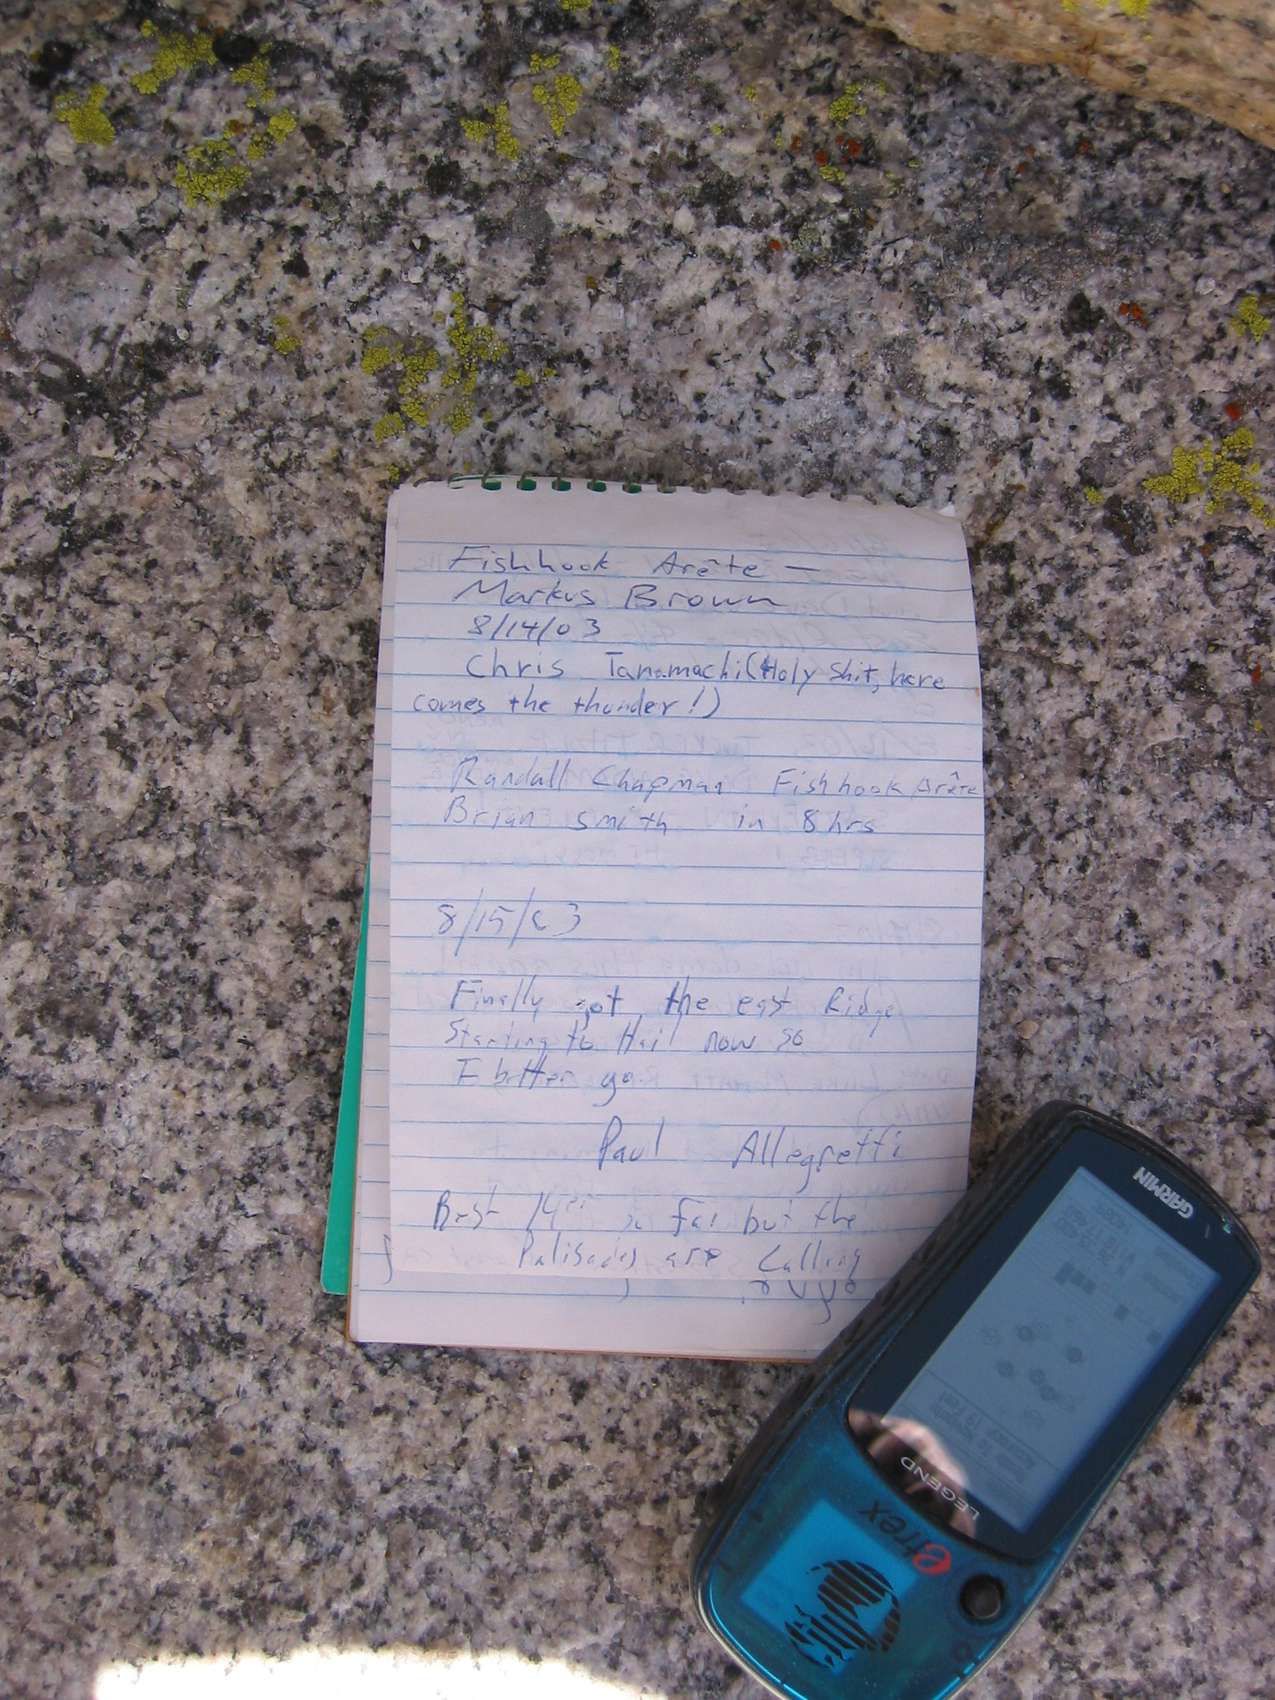 Fishhook Arête —
Markus Brown
8/14/03
Chris Tanamachi (Holy Shit, here
comes the thunder!)
Randall Chapman Fishhook Arête
Brian Smith in 8 hrs
8/15/03
Finally got the east Ridge
Starting to Hail now so
I better go.
Paul Allegretti
Best 14er so far but the
Palisades are Calling
GARMIN
LEGEND
etrex